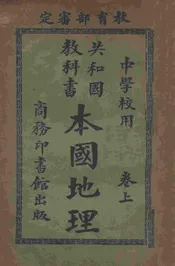 教育部審定
中學校用
卷上
共和國
教科書
本國地理
商務印書館出版